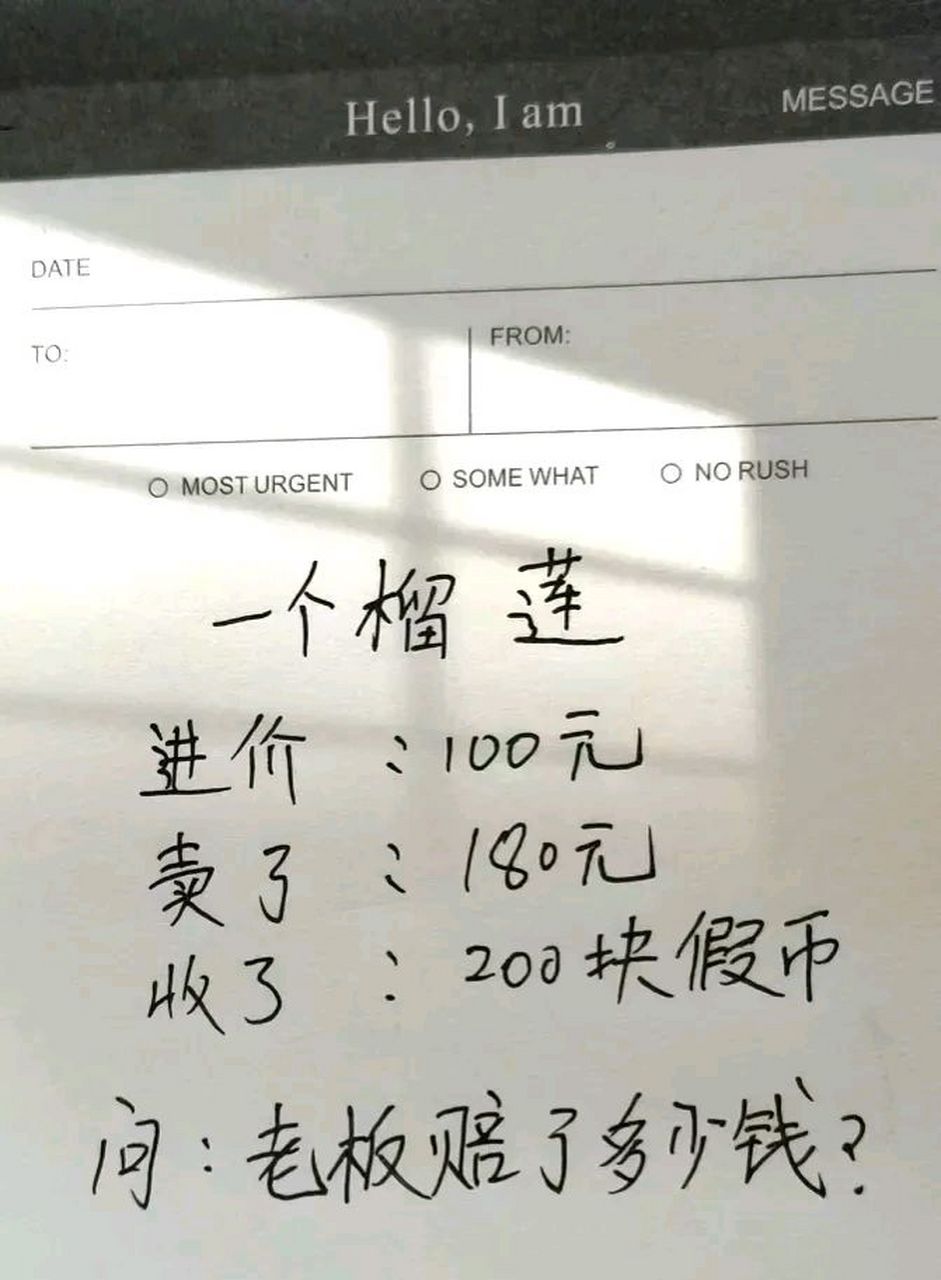 Hello, I am
MESSAGE
DATE
TO:
FROM:
MOST URGENT
SOME WHAT
NO RUSH
一个榴莲
进价：100元
卖了：180元
收了：200块假币
问：老板赔了多少钱？